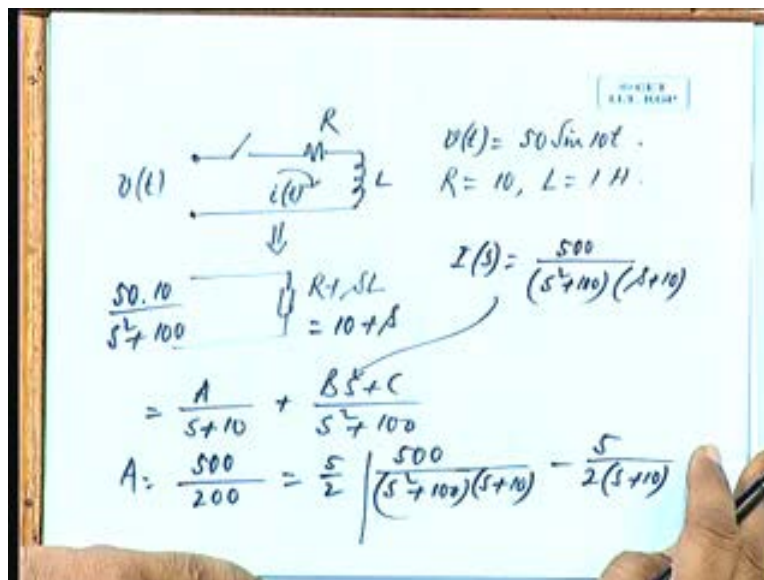 © CET
I.I.T. KGP
R
v(t)
i(t)
L
v(t) = 50 Sin 10t.
R = 10, L = 1 H.
50.10 / s²+100
R+SL
= 10+S
I(s) = 500 / (s²+100)(s+10)
= A / s+10 + Bs+C / s²+100
A = 500 / 200 = 5 / 2 | 500 / (s²+100)(s+10) − 5 / 2(s+10)